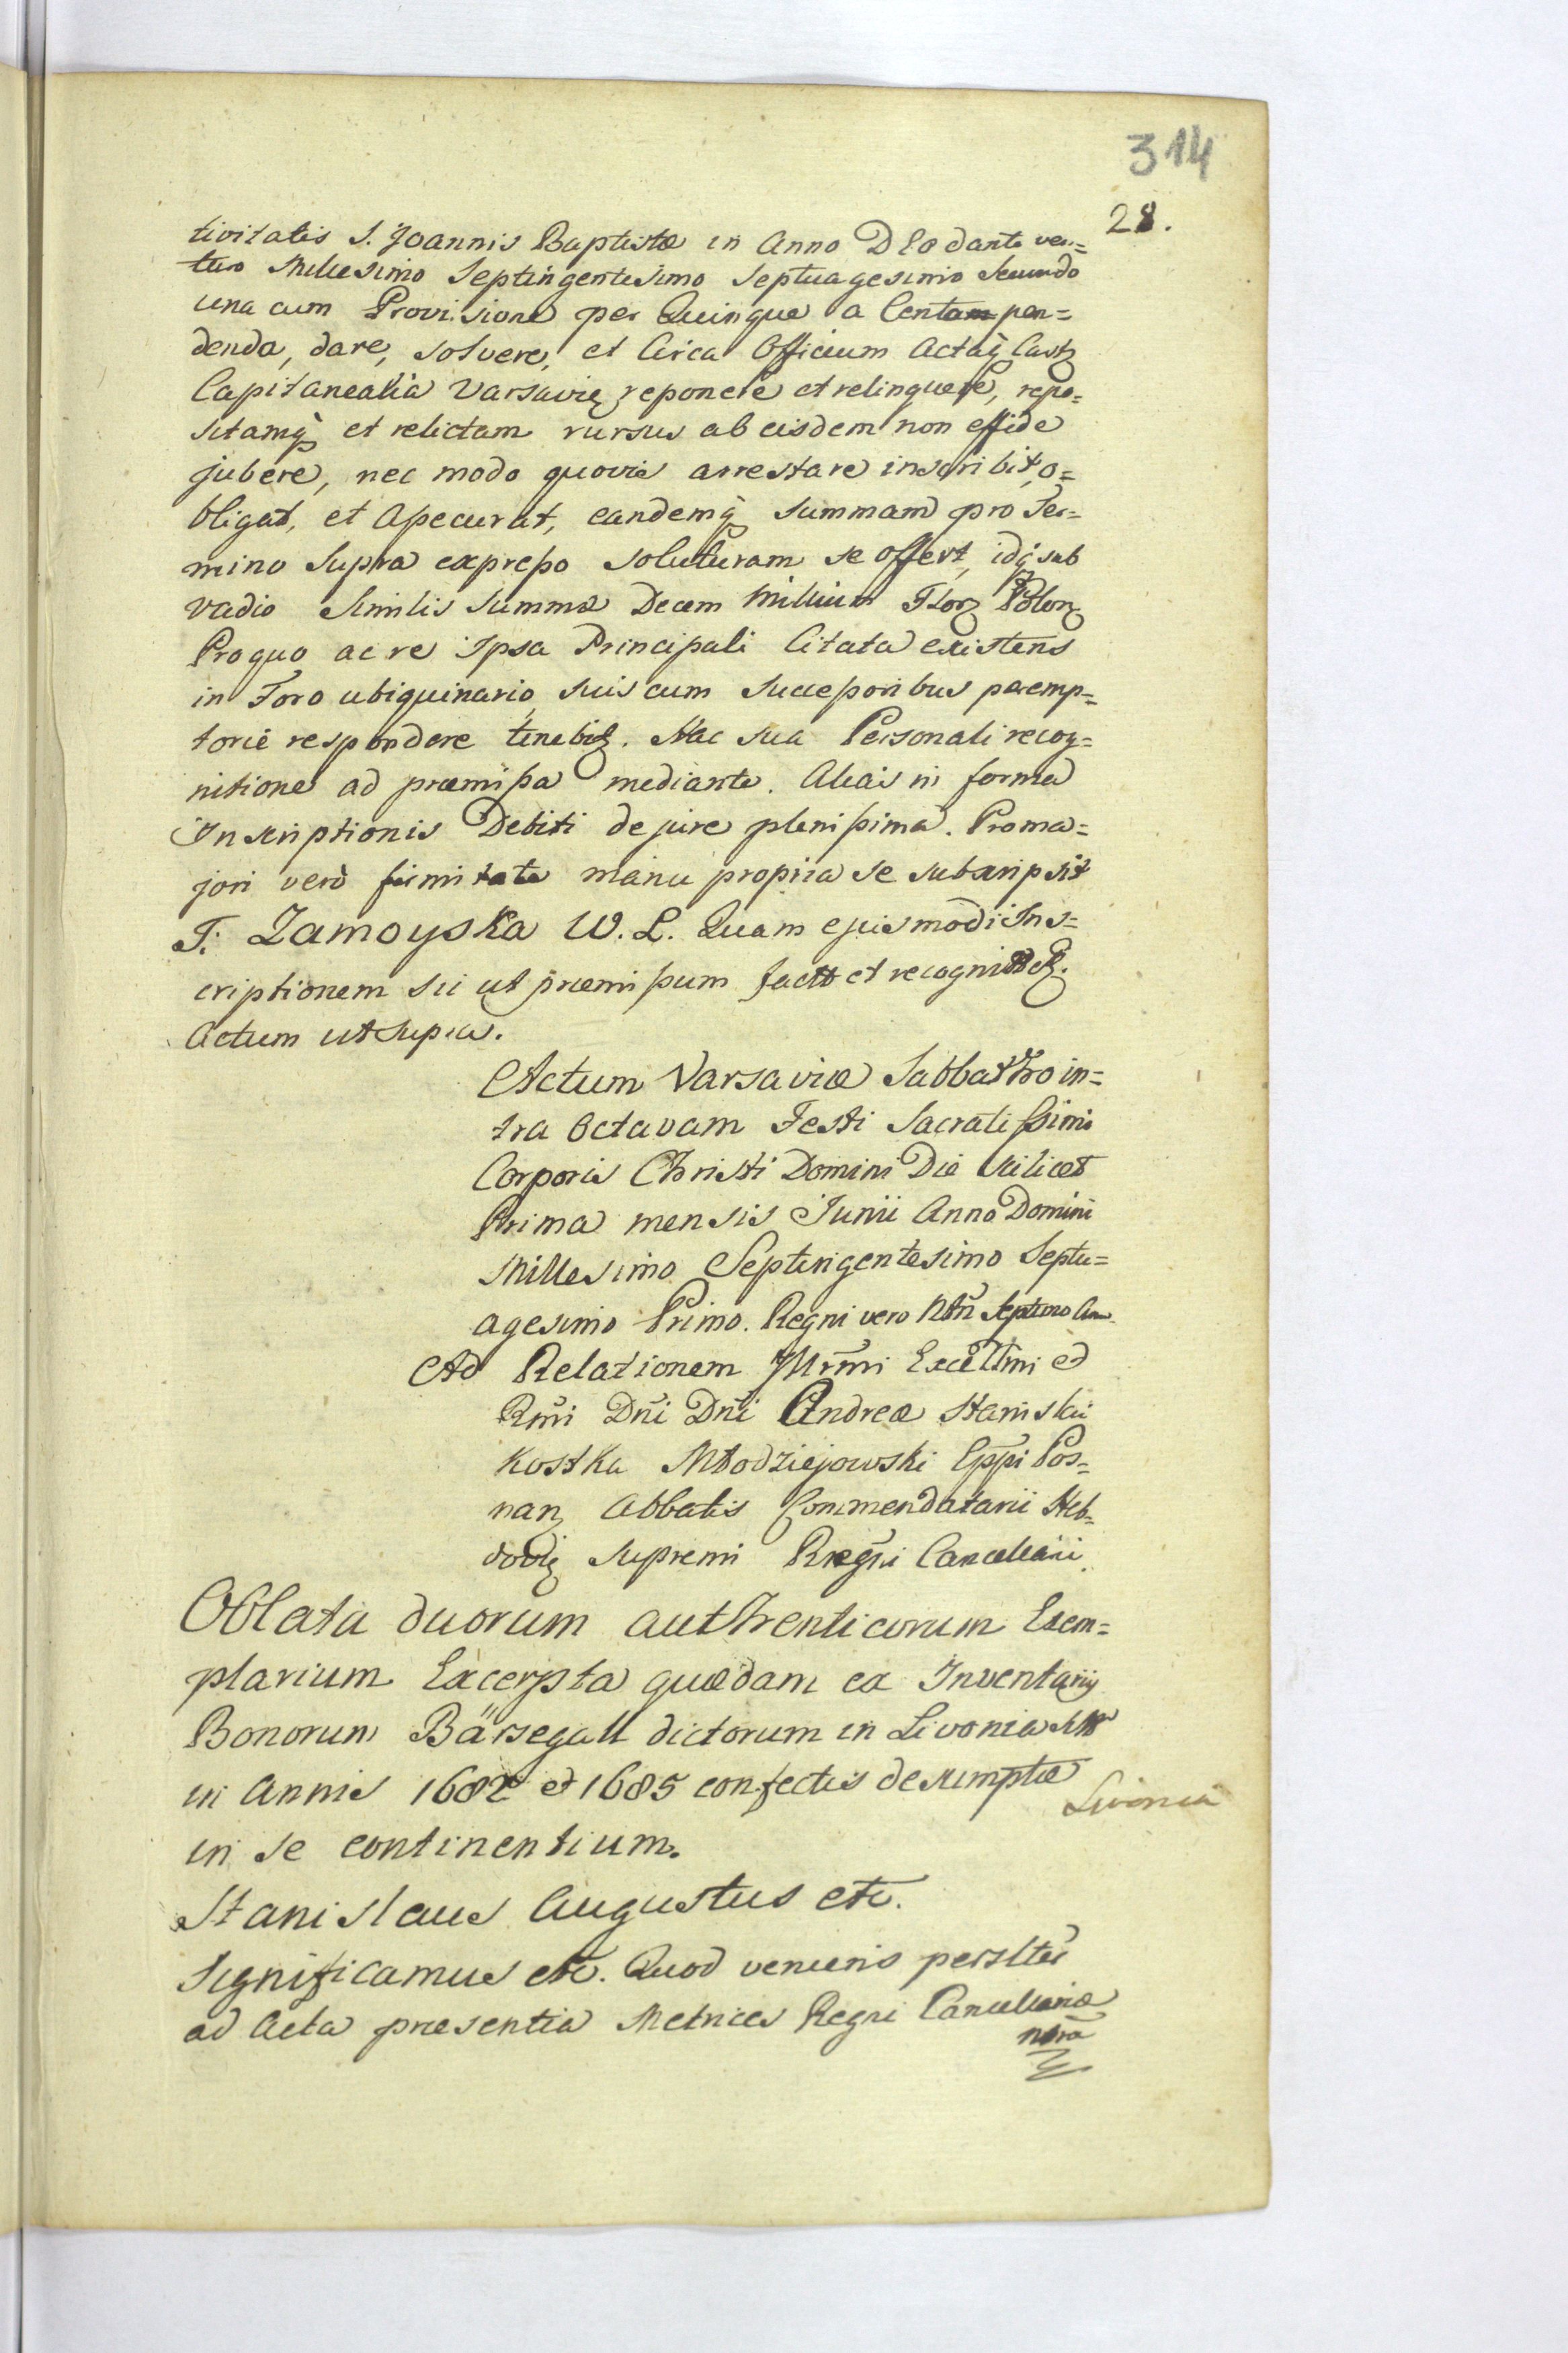 314
28.
tivitatis S. Joannis Baptistæ in Anno DEo dante ven=
turo Millesimo Septingentesimo Septuagesimo Secundo
una cum Provisione per Quinque a Centum pen=
denda, dare, solvere, et Circa Officium Actaq̃ Castr
Capitanealia Varsavien reponere et relinquere, repo=
sitamq̃ et relictam rursus ab eisdem non effide
jubere, nec modo quovis arrestare inscribit, o=
bligat, et Assecurat, eandemq̃ summam pro Ter=
mino supra expresso soluturam se offert, idq̃ sub
vadio similis summæ Decem Millium Flor Polon
Pro quo ac re Ipsa Principali Citata existens
in Foro ubiquinario, suis cum Successoribus peremp=
torie respondere tenebit. Hac sua Personali recog=
nitione ad præmissa mediante. Alias in forma
Inscriptionis Debiti de jure plenissima. Pro ma=
jori verò firmitate manu propria se subscripsit
T. Zamoyska W. L. Quam ejusmodi Ins=
criptionem sic ut præmissum facto et recognit
Actum ut supra.
Actum Varsaviæ Sabbatho in=
tra Octavam Festi Sacratissimi
Corporis Christi Domini Die scilicet
Prima mensis Junii Anno Domini
Millesimo Septingentesimo Septu=
agesimo Primo. Regni vero Ntri Septimo An.
Ad Relationem Illrmi Excellmi et
Rmi Dni Dni Andreæ Stanislai
Kostka Młodziejowski Eppi Pos=
nan Abbatis Commendatarii Heb=
dovien Supremi Regni Cancellarii.
Oblata duorum authenticorum Exem=
plarium Excerpta quædam ex Inventariis
Bonorum Bärsegall dictorum in Livonia
in Annis 1682 et 1685 confectis desumpta
Livonia
in se continentium.
Stanislaus Augustus etc.
Significamus etc. Quod veniens personlter
ad Acta præsentia Metrices Regni Cancellariæ
ntræ